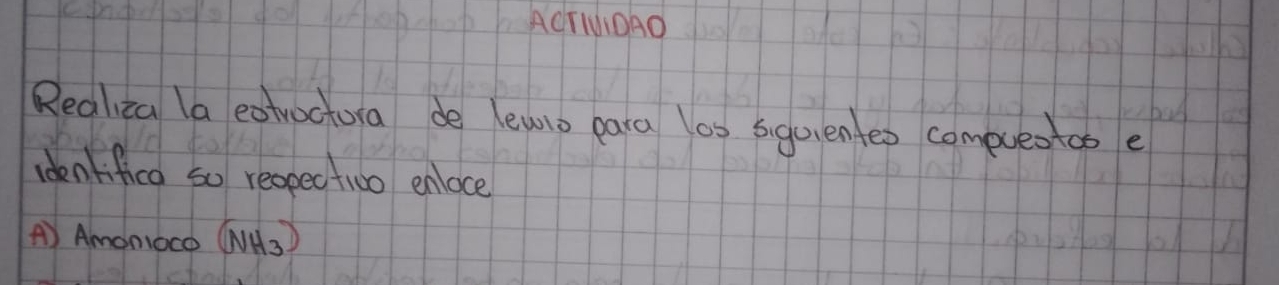 ACTIVIDAD
Realiza la estructura de lewis para los siguientes compuestos e
identifica su respectivo enlace
A) Amoniaco (NH3)